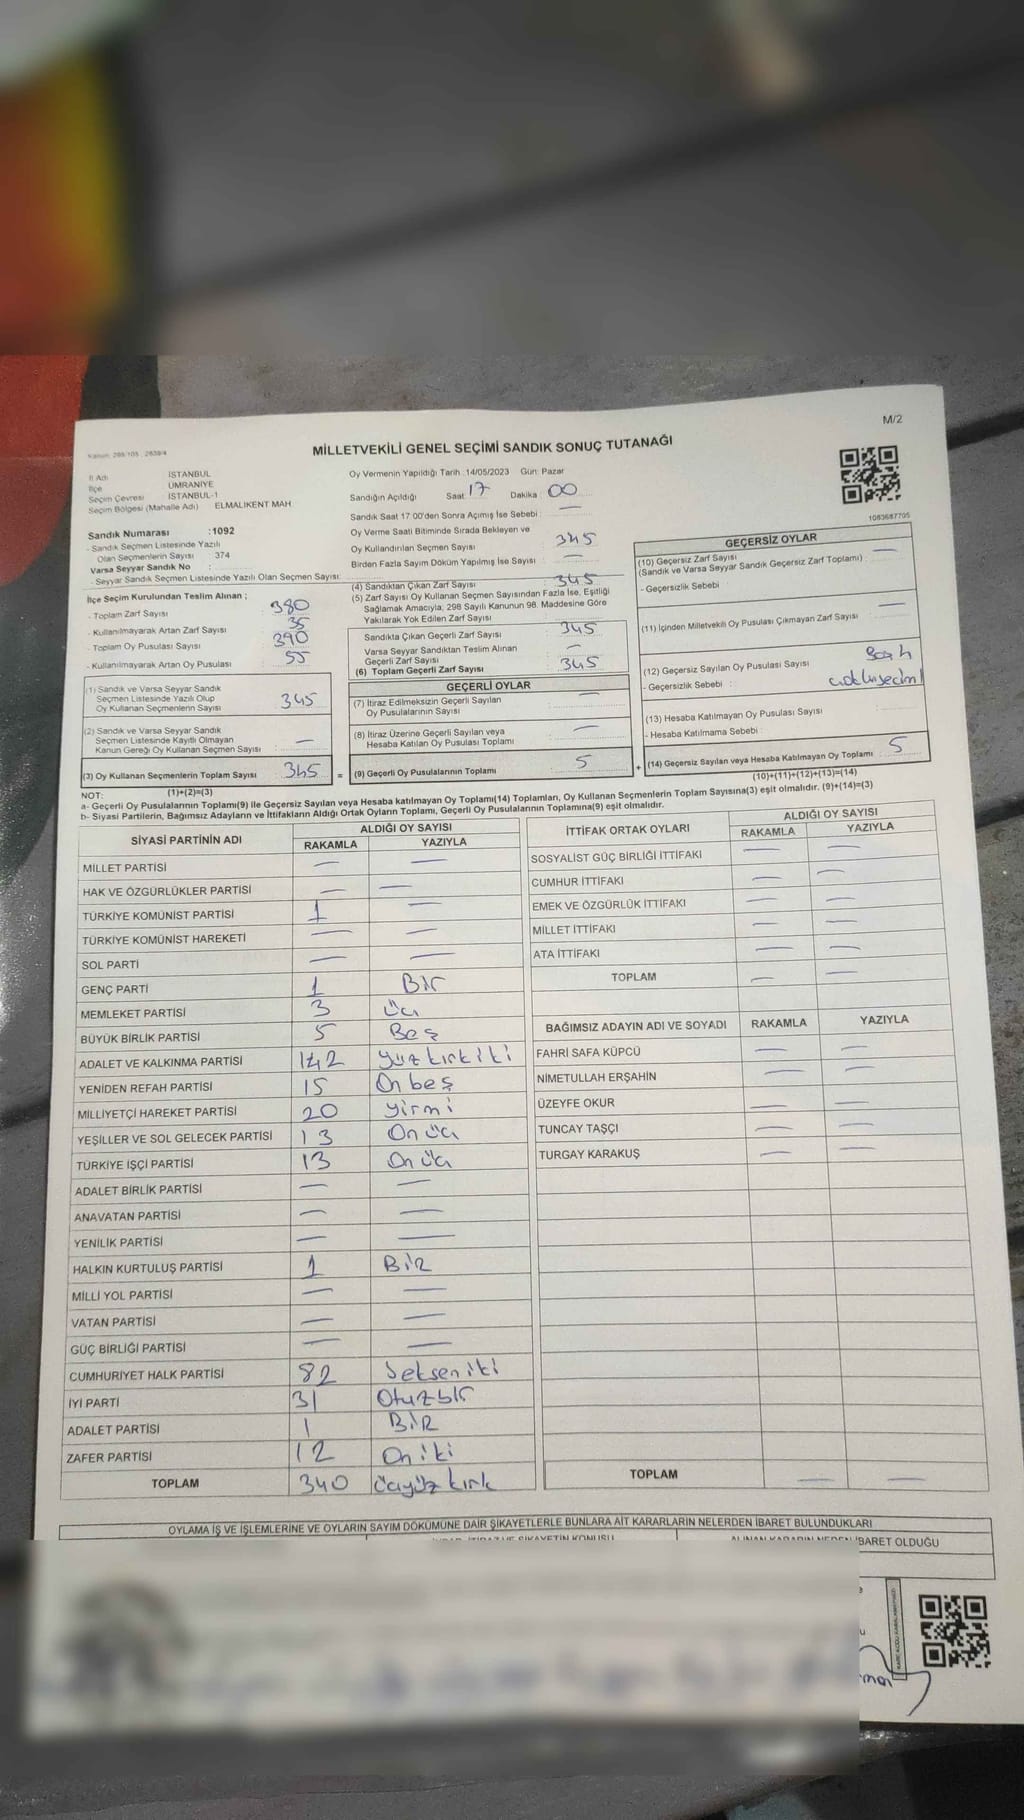 M/2
MİLLETVEKİLİ GENEL SEÇİMİ SANDIK SONUÇ TUTANAĞI
İl Adı İSTANBUL
İlçe ÜMRANİYE
Seçim Çevresi İSTANBUL-1
Seçim Bölgesi (Mahalle Adı) ELMALIKENT MAH
Sandık Numarası :1092
- Sandık Seçmen Listesinde Yazılı
Olan Seçmenlerin Sayısı : 374
Varsa Seyyar Sandık No :
- Seyyar Sandık Seçmen Listesinde Yazılı Olan Seçmen Sayısı:
Oy Vermenin Yapıldığı Tarih :14/05/2023 Gün: Pazar
Sandığın Açıldığı Saat 17 Dakika 00
Sandık Saat 17:00'den Sonra Açımış İse Sebebi : —
Oy Verme Saati Bitiminde Sırada Bekleyen ve
Oy Kullandırılan Seçmen Sayısı 345
Birden Fazla Sayım Döküm Yapılmış İse Sayısı : —
1083687705
İlçe Seçim Kurulundan Teslim Alınan ;
- Toplam Zarf Sayısı : 380
- Kullanılmayarak Artan Zarf Sayısı : 35
- Toplam Oy Pusulası Sayısı : 390
- Kullanılmayarak Artan Oy Pusulası : 55
(1) Sandık ve Varsa Seyyar Sandık
Seçmen Listesinde Yazılı Olup
Oy Kullanan Seçmenlerin Sayısı : 345
(2) Sandık ve Varsa Seyyar Sandık
Seçmen Listesinde Kayıtlı Olmayan
Kanun Gereği Oy Kullanan Seçmen Sayısı : —
(3) Oy Kullanan Seçmenlerin Toplam Sayısı : 345
(1)+(2)=(3)
(4) Sandıktan Çıkan Zarf Sayısı 345
(5) Zarf Sayısı Oy Kullanan Seçmen Sayısından Fazla İse, Eşitliği
Sağlamak Amacıyla; 298 Sayılı Kanunun 98. Maddesine Göre
Yakılarak Yok Edilen Zarf Sayısı
Sandıkta Çıkan Geçerli Zarf Sayısı : 345
Varsa Seyyar Sandıktan Teslim Alınan
Geçerli Zarf Sayısı : —
(6) Toplam Geçerli Zarf Sayısı : 345
GEÇERLİ OYLAR
(7) İtiraz Edilmeksizin Geçerli Sayılan
Oy Pusulalarının Sayısı : —
(8) İtiraz Üzerine Geçerli Sayılan veya
Hesaba Katılan Oy Pusulası Toplamı : —
= (9) Geçerli Oy Pusulalarının Toplamı : 5
GEÇERSİZ OYLAR
(10) Geçersiz Zarf Sayısı : —
(Sandık ve Varsa Seyyar Sandık Geçersiz Zarf Toplamı)
- Geçersizlik Sebebi :
(11) İçinden Milletvekili Oy Pusulası Çıkmayan Zarf Sayısı : —
(12) Geçersiz Sayılan Oy Pusulası Sayısı :
- Geçersizlik Sebebi :
(13) Hesaba Katılmayan Oy Pusulası Sayısı :
- Hesaba Katılmama Sebebi :
+ (14) Geçersiz Sayılan veya Hesaba Katılmayan Oy Toplamı : 5
(10)+(11)+(12)+(13)=(14)
NOT:
a- Geçerli Oy Pusulalarının Toplamı(9) ile Geçersiz Sayılan veya Hesaba katılmayan Oy Toplamı(14) Toplamları, Oy Kullanan Seçmenlerin Toplam Sayısına(3) eşit olmalıdır. (9)+(14)=(3)
b- Siyasi Partilerin, Bağımsız Adayların ve İttifakların Aldığı Ortak Oyların Toplamı, Geçerli Oy Pusulalarının Toplamına(9) eşit olmalıdır.
SİYASİ PARTİNİN ADI ALDIĞI OY SAYISI
RAKAMLA YAZIYLA
MİLLET PARTİSİ — —
HAK VE ÖZGÜRLÜKLER PARTİSİ — —
TÜRKİYE KOMÜNİST PARTİSİ 1 —
TÜRKİYE KOMÜNİST HAREKETİ — —
SOL PARTİ — —
GENÇ PARTİ 1 Bir
MEMLEKET PARTİSİ 3 Üç
BÜYÜK BİRLİK PARTİSİ 5 Beş
ADALET VE KALKINMA PARTİSİ 142 yüz kırk iki
YENİDEN REFAH PARTİSİ 15 On beş
MİLLİYETÇİ HAREKET PARTİSİ 20 yirmi
YEŞİLLER VE SOL GELECEK PARTİSİ 13 On üç
TÜRKİYE İŞÇİ PARTİSİ 13 On üç
ADALET BİRLİK PARTİSİ — —
ANAVATAN PARTİSİ — —
YENİLİK PARTİSİ — —
HALKIN KURTULUŞ PARTİSİ 1 BİR
MİLLİ YOL PARTİSİ — —
VATAN PARTİSİ — —
GÜÇ BİRLİĞİ PARTİSİ — —
CUMHURİYET HALK PARTİSİ 82 Seksen iki
İYİ PARTİ 31 Otuzbir
ADALET PARTİSİ 1 BİR
ZAFER PARTİSİ 12 On iki
TOPLAM 340 Üçyüz kırk
İTTİFAK ORTAK OYLARI ALDIĞI OY SAYISI
RAKAMLA YAZIYLA
SOSYALİST GÜÇ BİRLİĞİ İTTİFAKI — —
CUMHUR İTTİFAKI — —
EMEK VE ÖZGÜRLÜK İTTİFAKI — —
MİLLET İTTİFAKI — —
ATA İTTİFAKI — —
TOPLAM — —
BAĞIMSIZ ADAYIN ADI VE SOYADI RAKAMLA YAZIYLA
FAHRİ SAFA KÜPCÜ — —
NİMETULLAH ERŞAHİN — —
ÜZEYFE OKUR — —
TUNCAY TAŞÇI — —
TURGAY KARAKUŞ — —
TOPLAM — —
OYLAMA İŞ VE İŞLEMLERİNE VE OYLARIN SAYIM DÖKÜMÜNE DAİR ŞİKAYETLERLE BUNLARA AİT KARARLARIN NELERDEN İBARET BULUNDUKLARI
ALINAN KARARIN NEDEN İBARET OLDUĞU